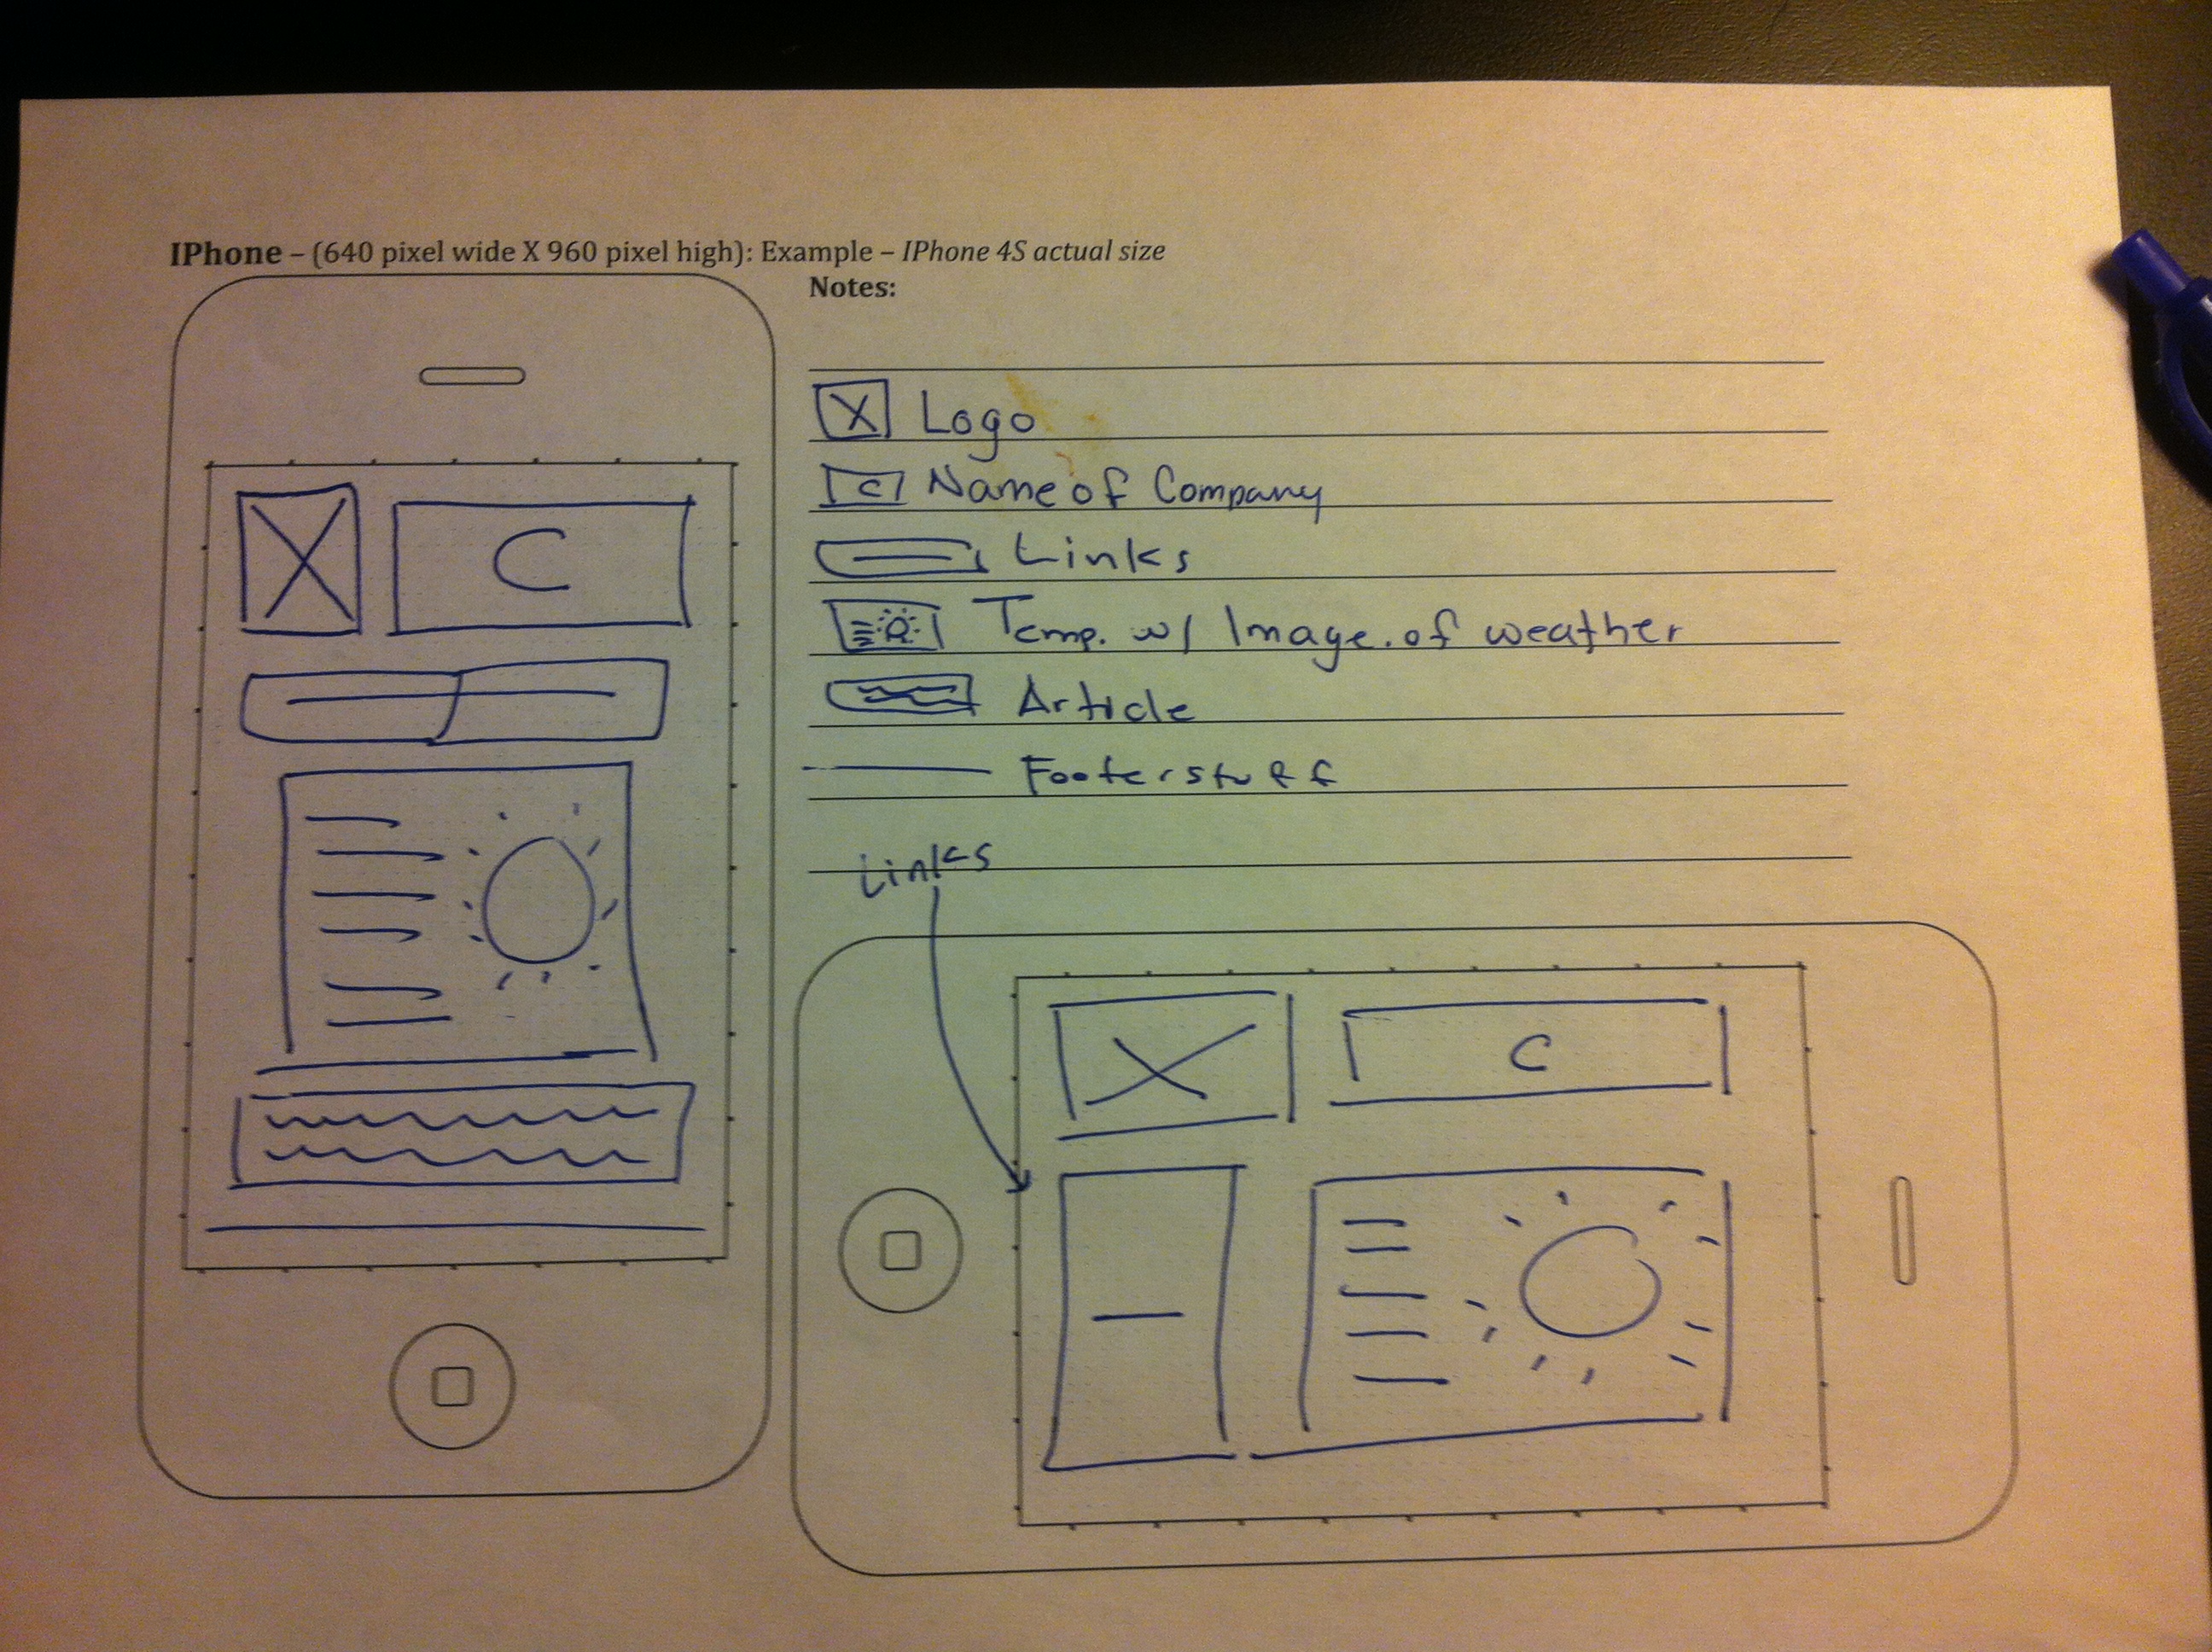 IPhone – (640 pixel wide X 960 pixel high): Example – IPhone 4S actual size
Notes:
X Logo
C Name of Company
Links
Temp. w/ Image. of weather
Article
Footer stuff
Links
X
C
X
C